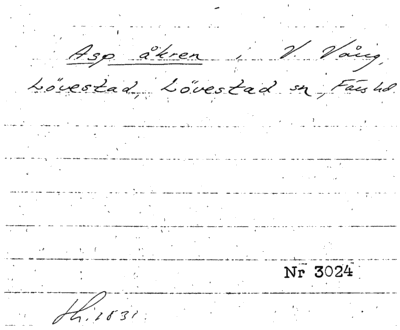 Asp åkren i V Vång,
Lövestad, Lövestad sn, Färs hd.
Nr 3024
sk. 1831.